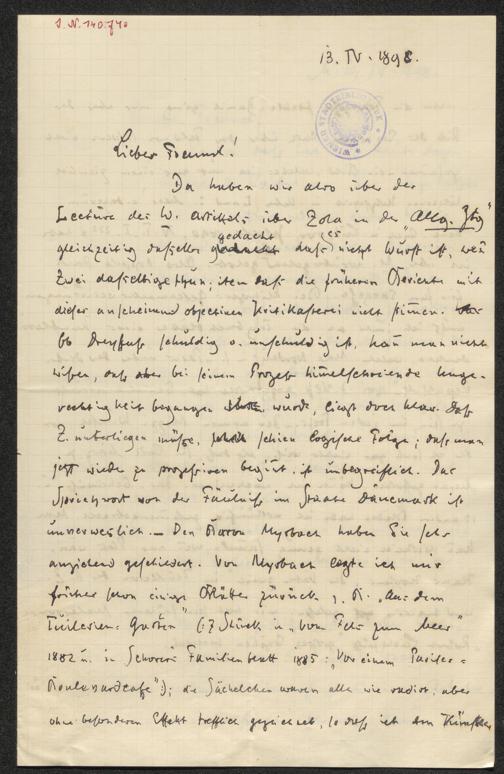 I.N. 140.740
13. IV. 1898.
WIENER STADTBIBLIOTHEK
Lieber Freund!
Da haben wir also über der
Lectüre des W. Artikels über Zola in der "Allg. Ztg"
gedacht (es)
gleichzeitig dasselbe daß nicht Wurst ist, wen̄
zwei dasselbige thun; item daß die früheren mit
dieser anscheinend objectiven Kritikasterei nicht stimmen.
Ob Dreyfuss schuldig o. unschuldig ist, kan̄ man nicht
wissen, daß aber bei seinem Prozeß himmelschreiende Unge-
rechtigkeit begangen wurde, liegt doch klar. Daß
Z. unterliegen müße, schien logische Folge; daß man
jetzt wieder zu prozessiren begin̄t, ist unbegreiflich. Das
Sprichwort von der Fäulniß im Staate Dänemark ist
unverweslich. — Den Baron Myrbach haben Sie sehr
anziehend geschildert. Von Myrbach legte ich mir
früher schon einige Blätter zurück, z. B. "Aus dem
Tuilerien-Garten" (:7 Stück in "Vom Fels zum Meer"
1882 u. in Schorers Familienblatt 1885: "Vor einem Pariser-
Boulevardcafé"); die Sächelchen waren alle wie radirt, aber
ohne besonderen Effekt trefflich gezeichnet, so daß ich den Künstler